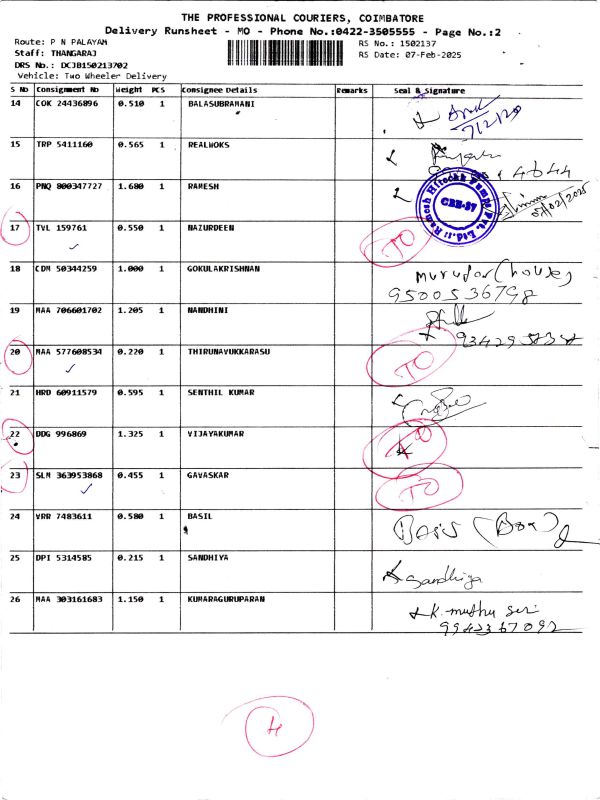 THE PROFESSIONAL COURIERS, COIMBATORE
Delivery Runsheet - MO - Phone No.:0422-3505555 - Page No.:2
Route: P N PALAYAM RS No.: 1502137
Staff: THANGARAJ RS Date: 07-Feb-2025
DRS No.: DCJB150213702
Vehicle: Two Wheeler Delivery
S No Consignment No Weight PCS Consignee Details Remarks Seal & Signature
14 COK 24436896 0.510 1 BALASUBRAMANI
7/2/20
15 TRP 5411160 0.565 1 REALWOKS
4644
16 PNQ 800347727 1.680 1 RAMESH
Ramesh Hitechh Pumps Pvt. Ltd.
CBE-37
07/02/2025
17 TVL 159761 0.550 1 NAZURDEEN
TO
18 CDM 50344259 1.000 1 GOKULAKRISHNAN
Murugan (house)
9500536798
19 MAA 706601702 1.205 1 NANDHINI
20 MAA 577608534 0.220 1 THIRUNAVUKKARASU
TO
21 HRD 60911579 0.595 1 SENTHIL KUMAR
22 DDG 996869 1.325 1 VIJAYAKUMAR
TO
23 SLM 363953868 0.455 1 GAVASKAR
TO
24 VRR 7483611 0.580 1 BASIL
25 DPI 5314585 0.215 1 SANDHIYA
Sandhiya
26 MAA 303161683 1.150 1 KUMARAGURUPARAN
K. muthu
9942367092
4